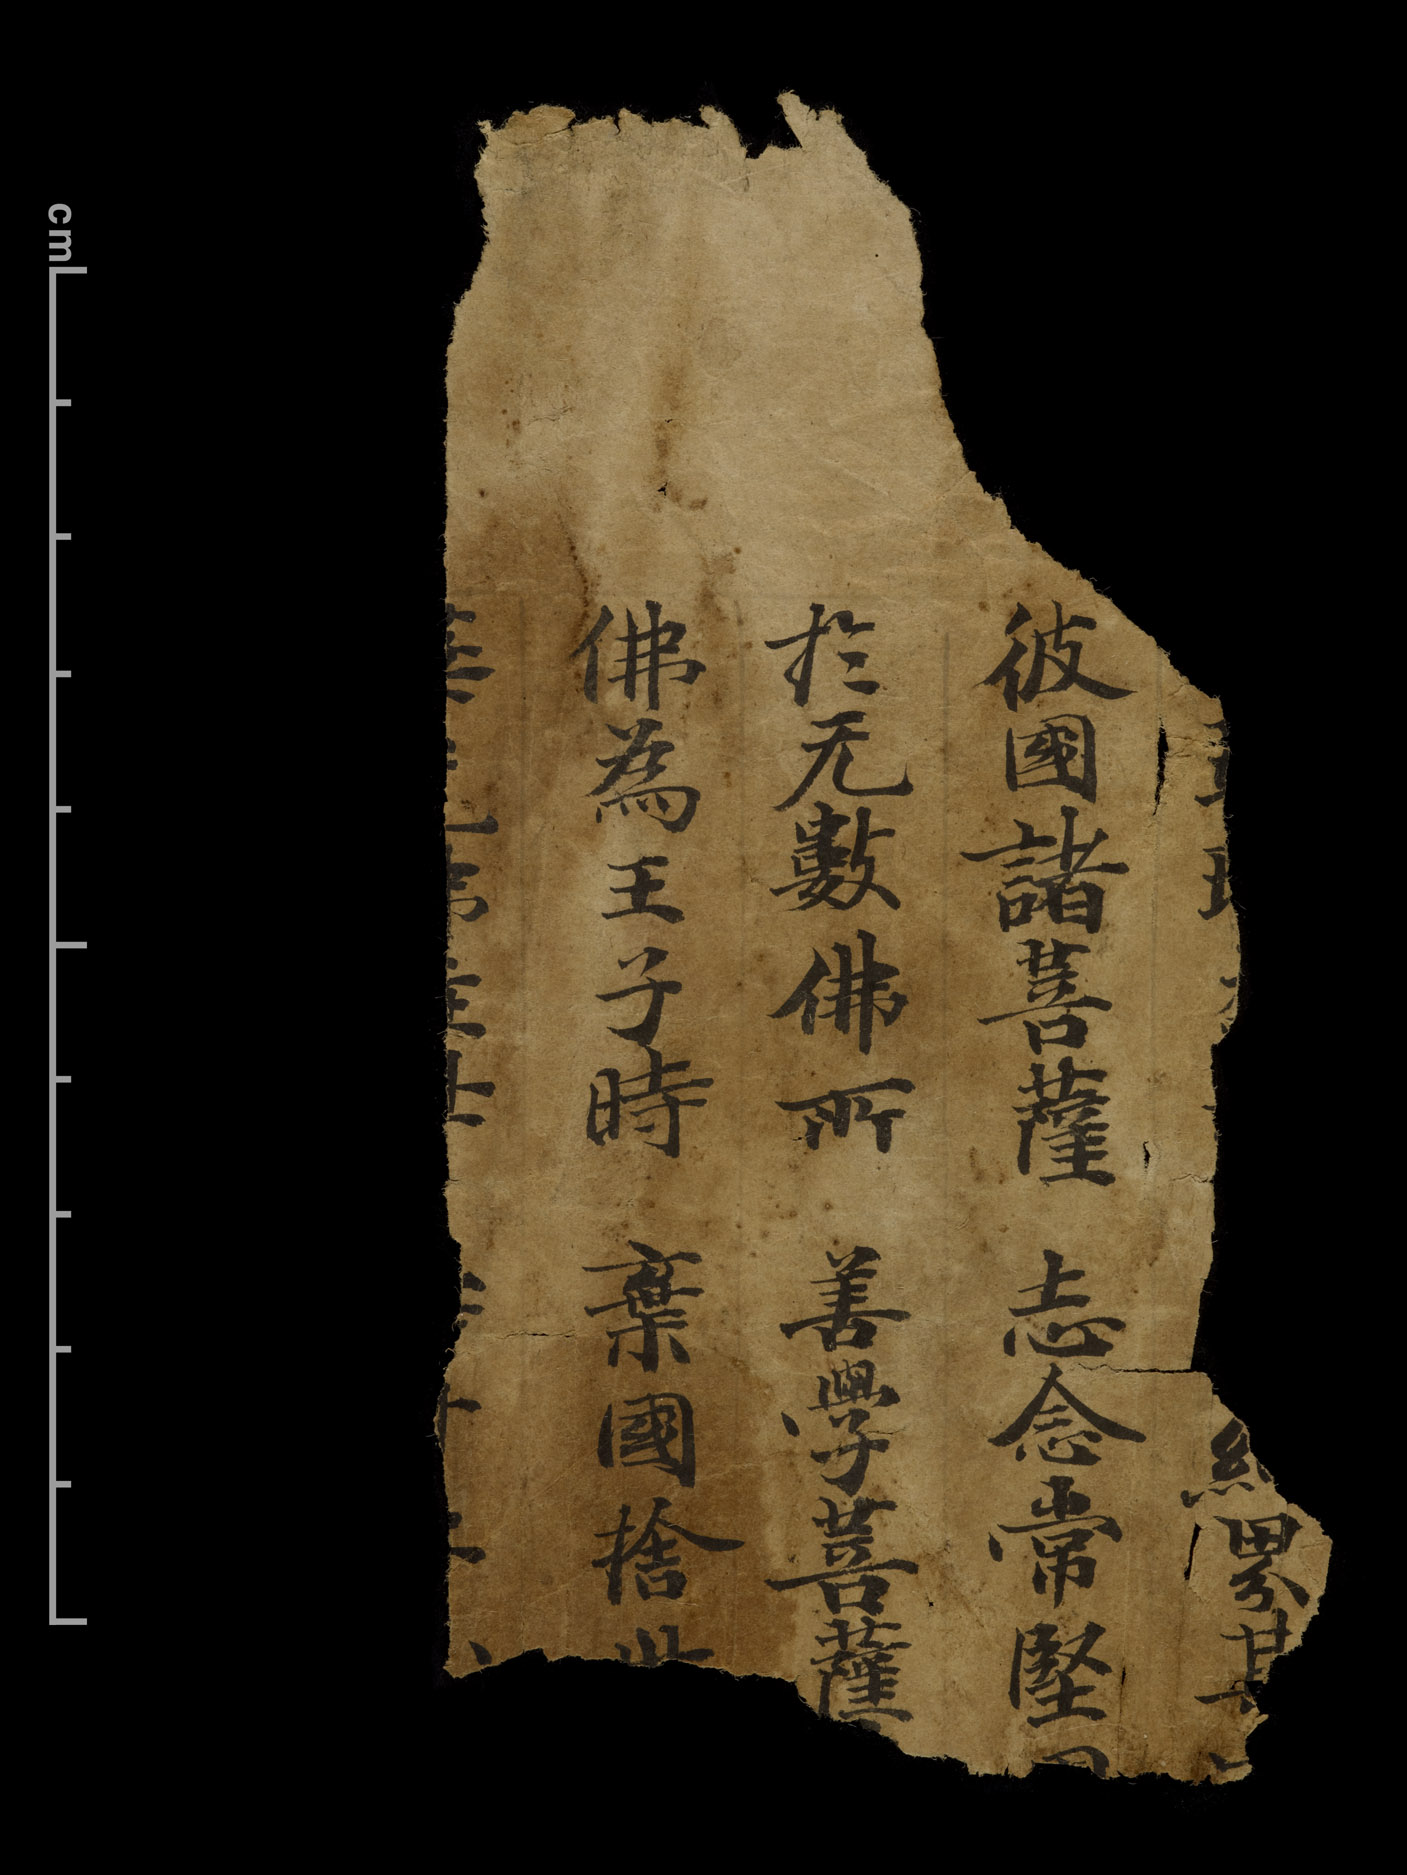 界其
彼國諸菩薩 志念常堅
扵无數佛所 善學菩薩
佛為王子時 棄國捨世